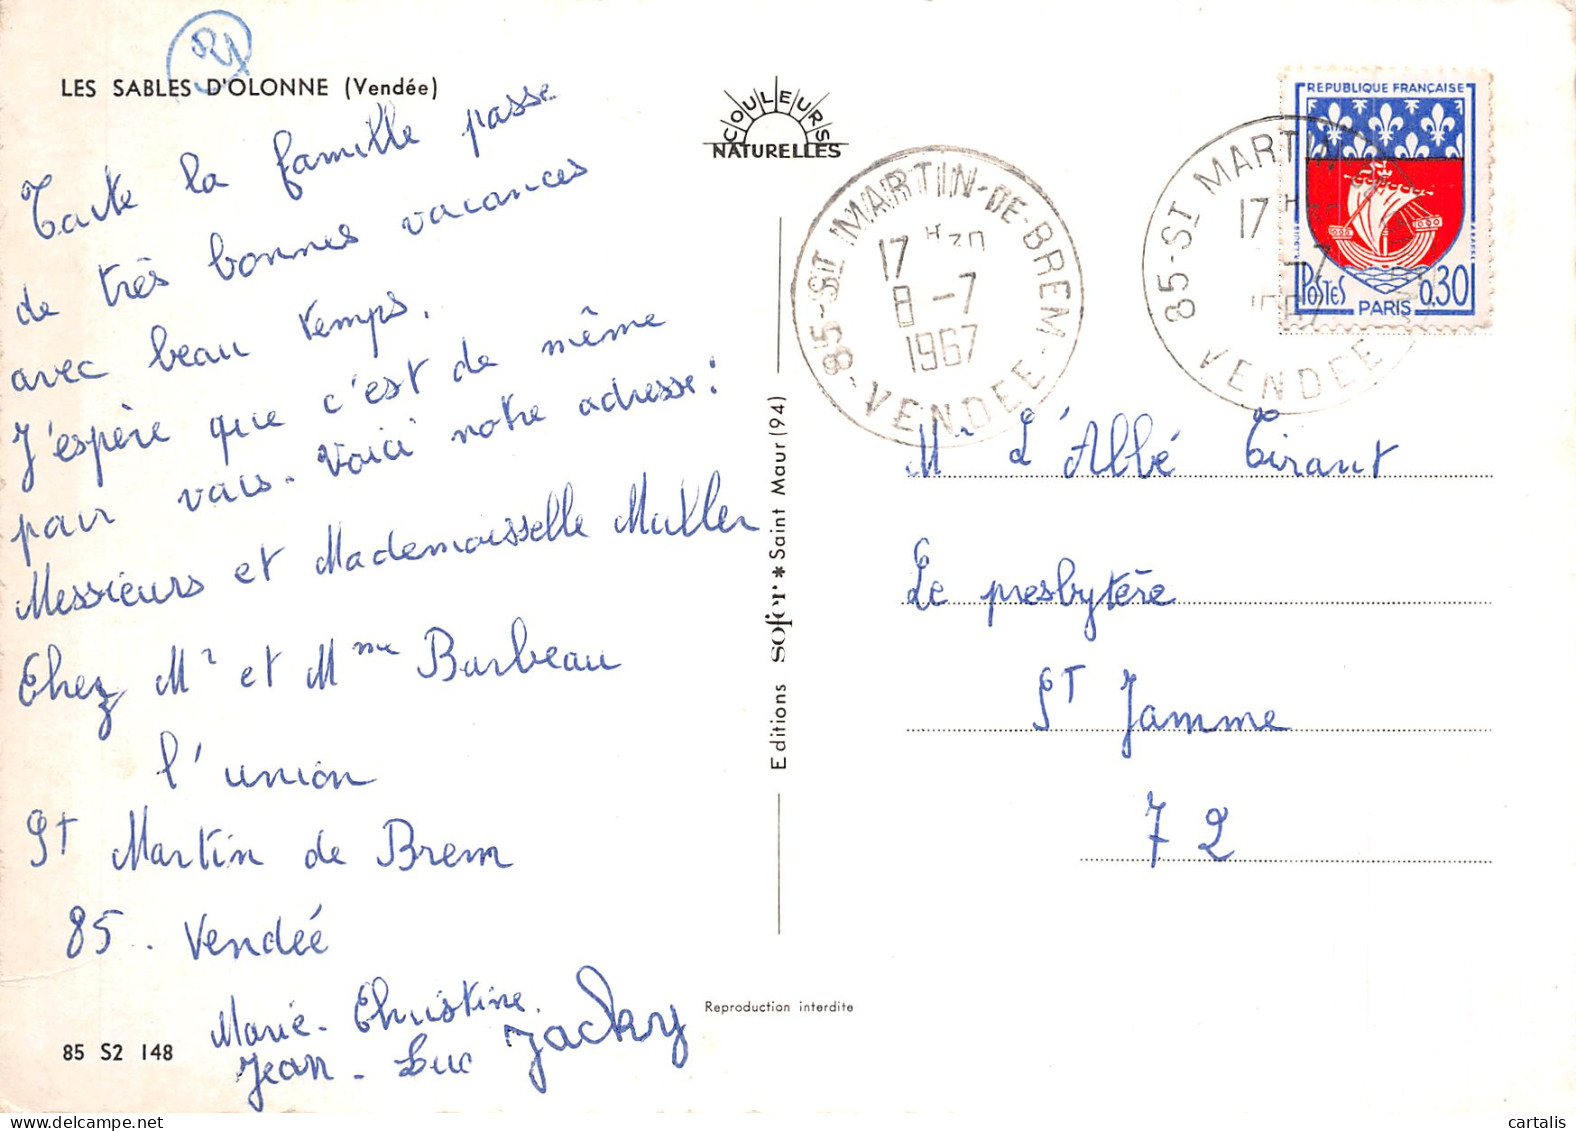 LES SABLES D'OLONNE (Vendée)
Toute la famille passe
de très bonnes vacances
avec beau temps.
J'espère que c'est de même
pour vous. Voici notre adresse :
Messieurs et Mademoisselle Muller
Chez Mr et Mme Barbeau
l'union
St Martin de Brem
85. Vendée
Marie-Christine.
Jean-Luc Jacky
85 S2 148
COULEURS
NATURELLES
Editions sofer * Saint Maur (94)
Reproduction interdite
85-ST MARTIN-DE-BREM
17 H30
8-7
1967
VENDEE
85-ST MARTIN
17 H
-7
VENDEE
REPUBLIQUE FRANÇAISE
POSTES 0,30
PARIS
Mr L'Abbé Tirant
Le presbytère
St Jamme
72
cartalis